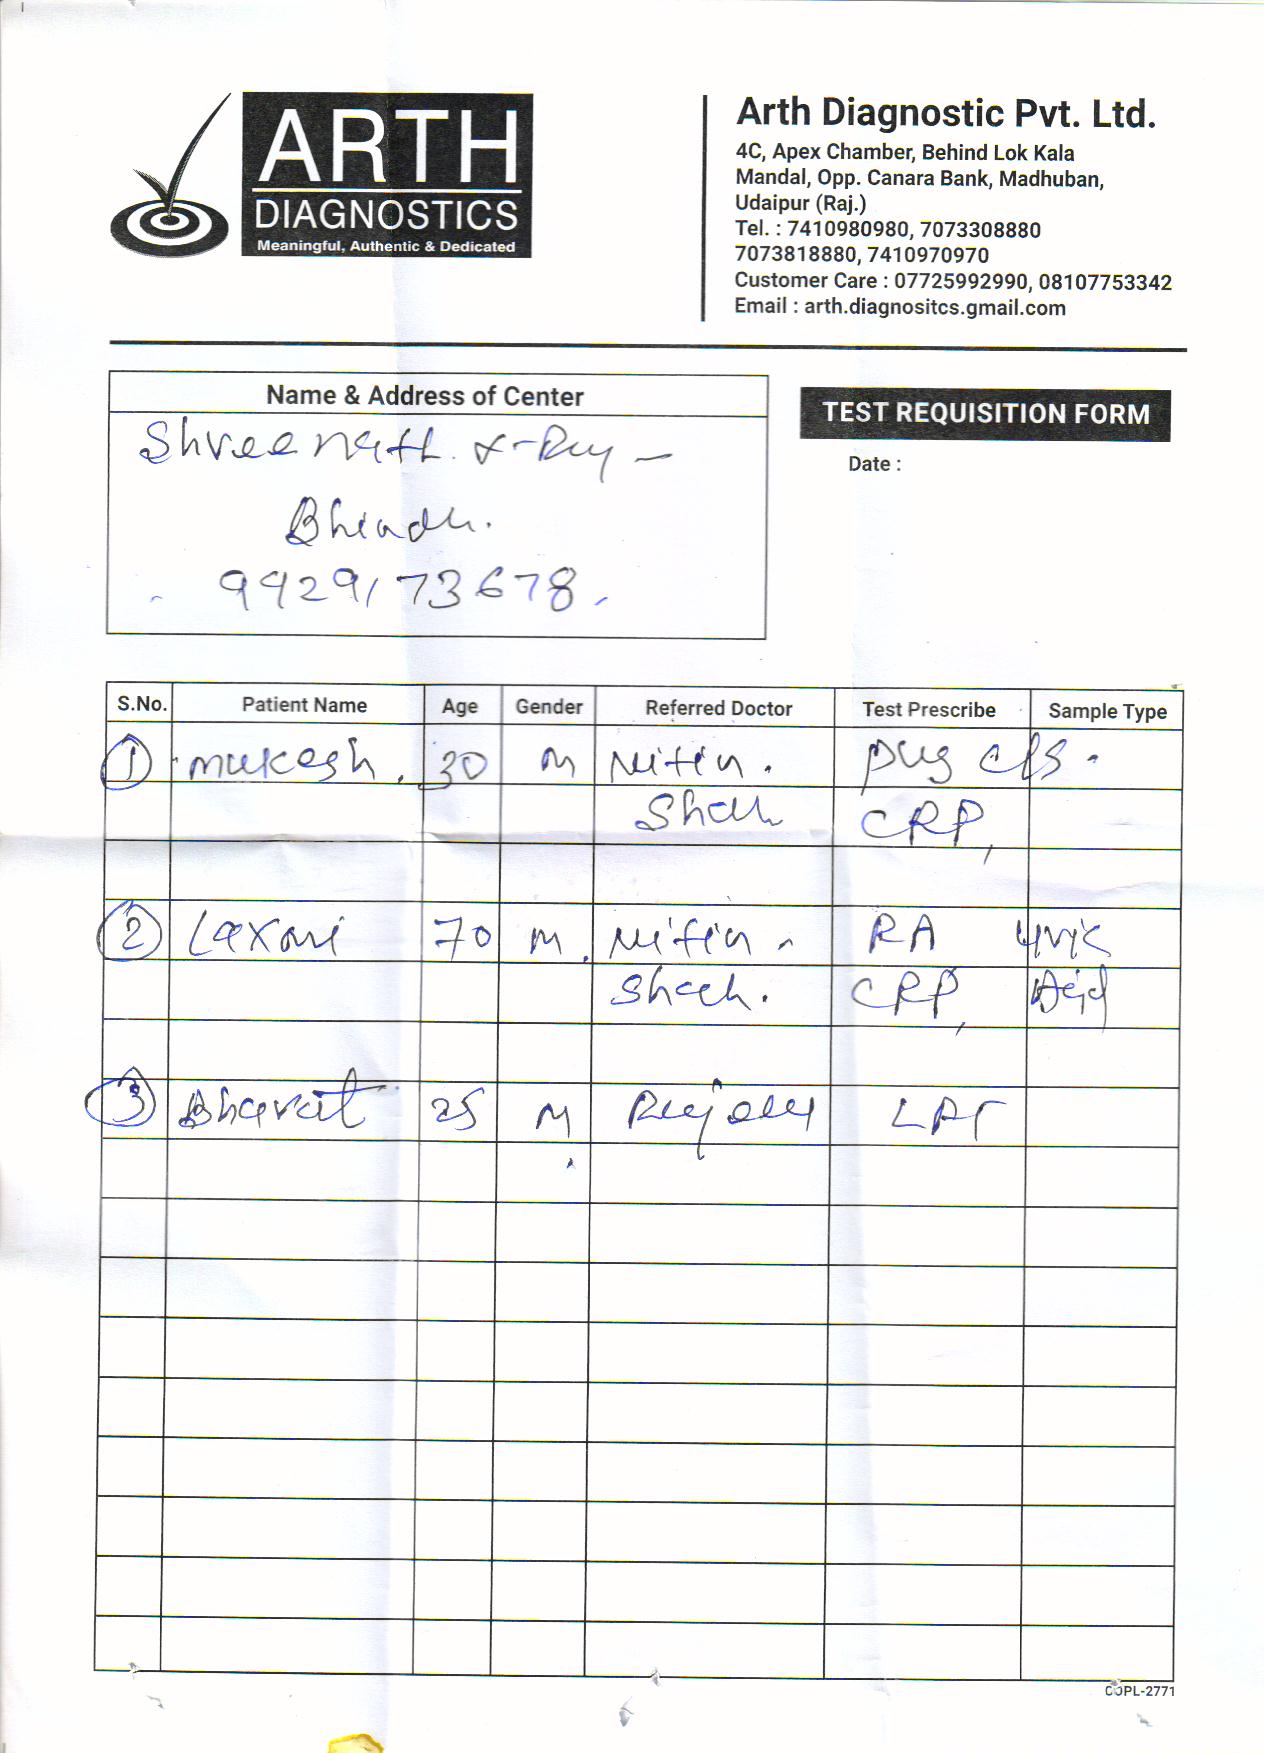 ARTH
DIAGNOSTICS
Meaningful, Authentic & Dedicated
Arth Diagnostic Pvt. Ltd.
4C, Apex Chamber, Behind Lok Kala
Mandal, Opp. Canara Bank, Madhuban,
Udaipur (Raj.)
Tel. : 7410980980, 7073308880
7073818880, 7410970970
Customer Care : 07725992990, 08107753342
Email : arth.diagnositcs.gmail.com
Name & Address of Center
Shreenath X-Ray
9929173678
TEST REQUISITION FORM
Date :
S.No. Patient Name Age Gender Referred Doctor Test Prescribe Sample Type
1 mukesh. 30 m Nitin. pus c/s.
Shah CRP,
2 Laxmi 70 m. Nitin RA Uric
Shah. CRP, Acid
3 Bharat 25 M
COPL-2771